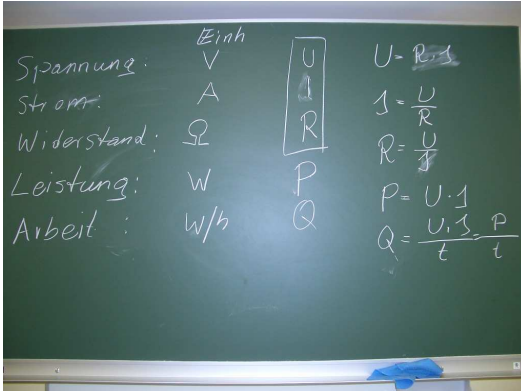 Einh
Spannung: V U U = R · I
Strom: A I I = U/R
Widerstand: Ω R R = U/I
Leistung: W P P = U · I
Arbeit : W/h Q Q = U · I/t = P/t